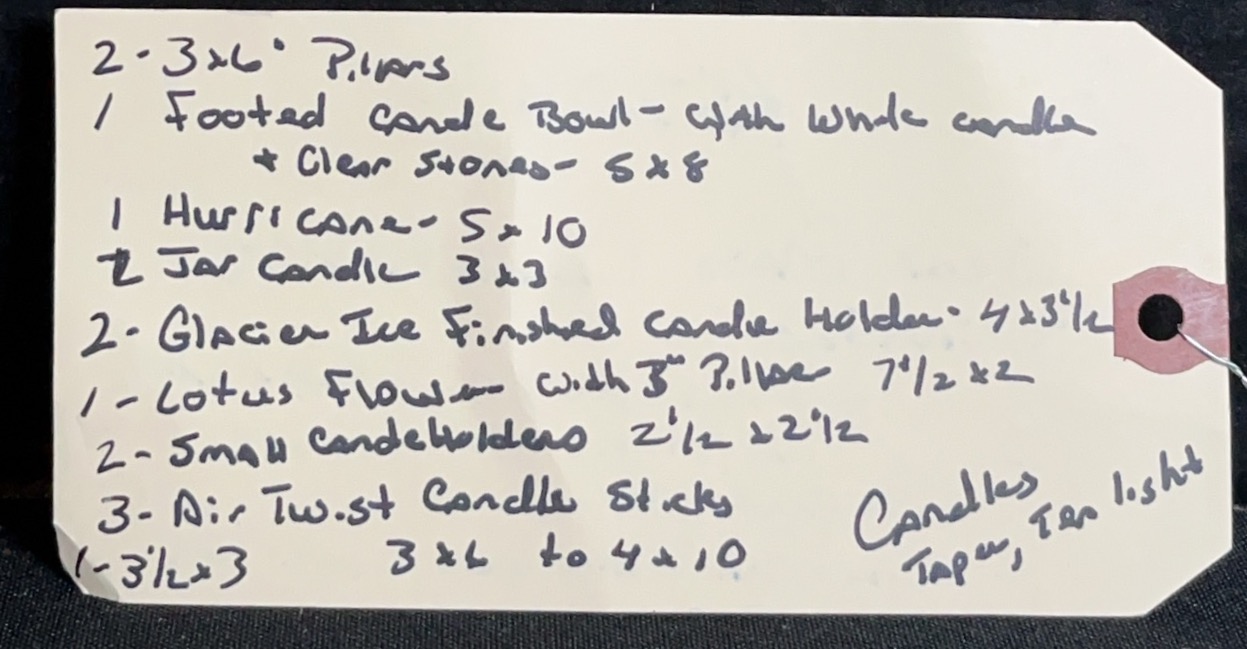 2 - 3x6" Pillars
1 Footed Candle Bowl - with White candle
+ Clear Stones - 5 x 8
1 Hurricane - 5 x 10
2 Jar Candle 3 x 3
2 - Glacier Ice Finished Candle Holder - 4 x 3 1/2
1 - Lotus Flower with 3" Pillar 7 1/2 x 2
2 - Small Candleholders 2 1/2 x 2 1/2
3 - Air Twist Candle Sticks
1 - 3 1/2 x 3 3 x 6 to 4 x 10
Candles
Taper, Tea light